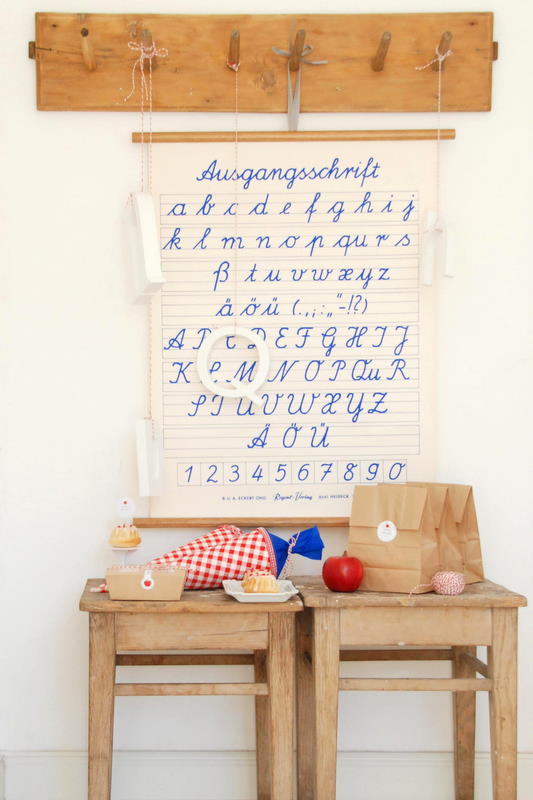 Ausgangsschrift
a b c d e f g h i j
k l m n o p qu r s
ß t u v w x y z
ä ö ü ( . , ; : „ " - ! ? )
A B C D E F G H I J
K L M N O P Qu R
S T U V W X Y Z
Ä Ö Ü
1 2 3 4 5 6 7 8 9 0
B. U. A. ECKERT OHG Regent-Verlag
Q